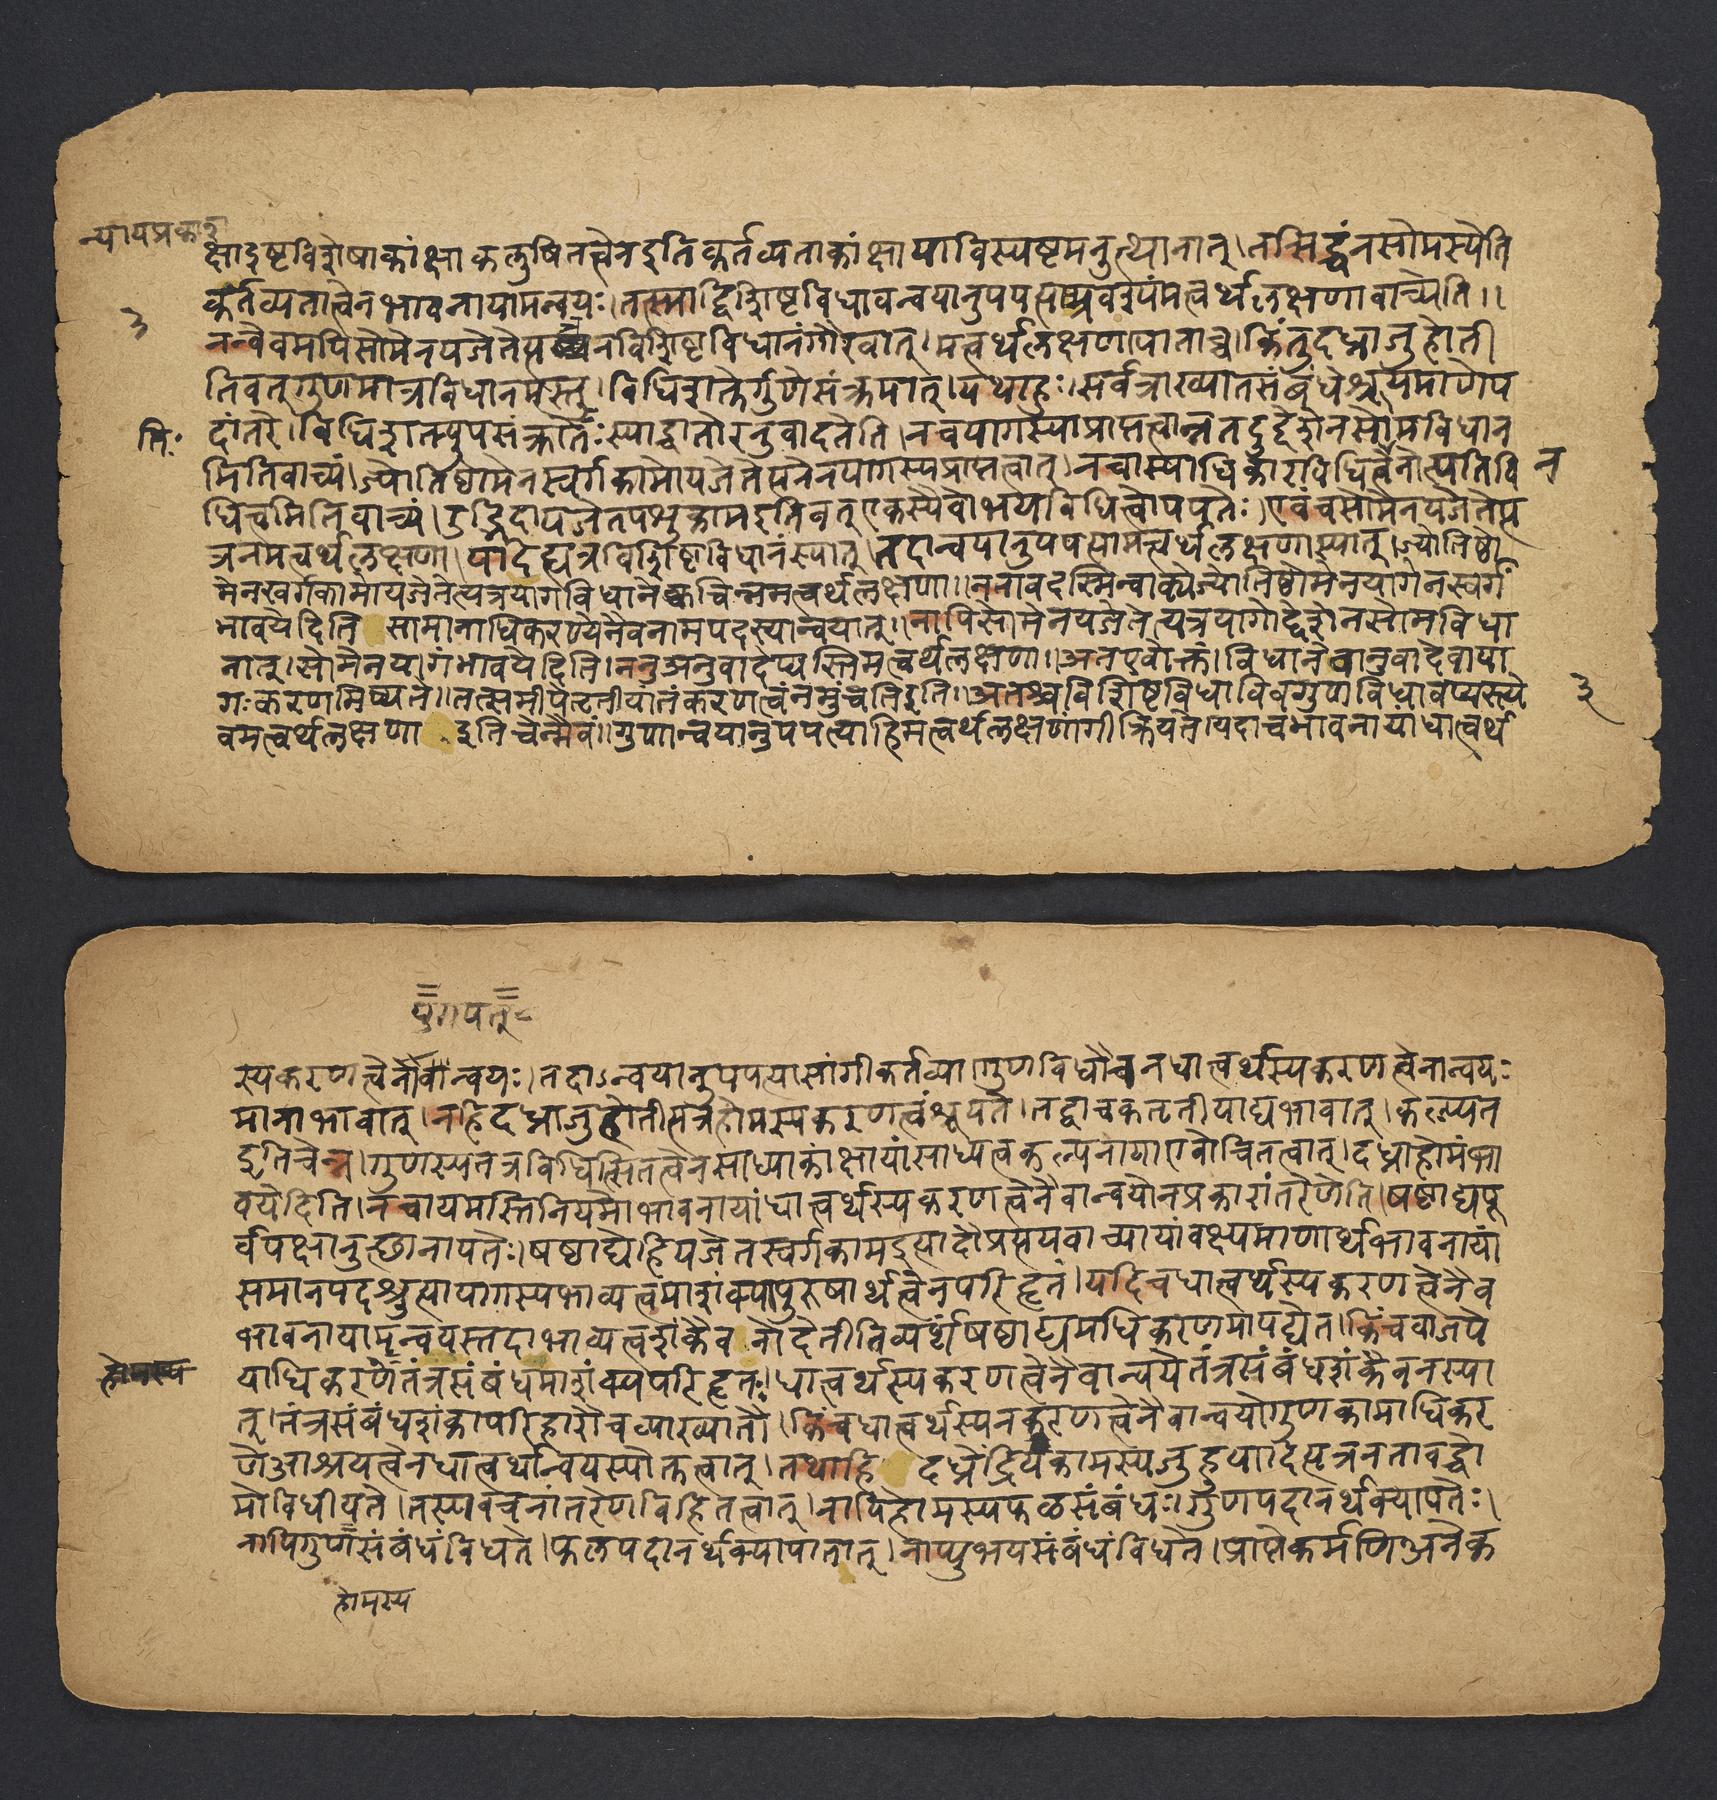 न्यायप्रकाश
क्षादृष्टविशेषाकांक्षाकलुषितत्वेनइतिकर्तव्यताकांक्षायाविस्पष्टमनुत्थानात्।तत्सिद्धंनसोमस्येति
कर्तव्यतात्वेनभावनायामन्वयः।तस्माद्विशिष्टविधावन्वयानुपपत्त्यावश्यंमत्वर्थलक्षणावाच्येति॥
३
नन्वेवमपिसोमेनयजेतेत्यत्रनविशिष्टविधानंगौरवात्।मत्वर्थलक्षणापाताच्च।किंतुदध्नाजुहोती
तिवत्गुणमात्रविधानमस्तु।विधिशक्तेर्गुणेसंक्रमात्।यथाहुः।सर्वत्राख्यातसंबंधेश्रूयमाणेप
दांतरे।विधिशक्त्युपसंक्रांतेःस्याद्धातोरनुवादतेति।नचयागस्याप्राप्तत्वान्नतदुद्देशेनसोमविधान
ति:
मितिवाच्यं।ज्योतिष्टोमेनस्वर्गकामोयजेतेत्यनेनयागस्यप्राप्तत्वात्।नचास्याधिकारविधित्वेनोत्पतिवि
न
धित्वमितिवाच्यं।उद्भिदायजेतपशुकामइतिवत्एकस्यैवोभयविधित्वोपपत्तेः।एवंचसोमेनयजेतेत्य
त्रनमत्वर्थलक्षणा।यदिह्यत्रविशिष्टविधानंस्यात्।तदान्वयानुपपत्त्यामत्वर्थलक्षणास्यात्।ज्योतिष्टो
मेनस्वर्गकामोयजेतेत्यत्रयागविधानेक्वचिन्नमत्वर्थलक्षणा॥नतावदस्मिन्वाक्येज्योतिष्टोमेनयागेनस्वर्गं
भावयेदिति सामानाधिकरण्येनैवनामपदस्यान्वयात्।नापिसोमेनयजेतेत्यत्रयागोद्देशेनसोमविधा
नात्।सोमेनयागंभावयेदिति।ननुअनुवादेप्यस्तिमत्वर्थलक्षणा॥अतएवोक्तं।विधानेवानुवादेवाया
गःकरणमिष्यते॥तत्समीपेतृतीयांतंकरणत्वंनमुंचतिइति॥अतश्चविशिष्टविधाविवगुणविधावप्यस्त्ये
३
वमत्वर्थलक्षणा इतिचेन्मैवं॥गुणान्वयानुपपत्त्याहिमत्वर्थलक्षणांगीक्रियते।यदाचभावनायांधात्वर्थ
युगपत्
स्यकरणत्वेनैवान्वयः।तदाऽन्वयानुपपत्त्यासांगीकर्तव्या।गुणविधौचनधात्वर्थस्यकरणत्वेनान्वयः
मानाभावात्।नहिदध्नाजुहोतीत्यत्रहोमस्यकरणत्वंश्रूयते।तद्वाचकतृतीयाद्यभावात्।कल्प्यत
इतिचेन्न।गुणस्यतत्रविधित्सितत्वेनसाध्याकांक्षायांसाध्यत्वकल्पनायाएवोचितत्वात्।दध्नाहोमंभा
वयेदिति।नचायमस्तिनियमोभावनायांधात्वर्थस्यकरणत्वेनैवान्वयोनप्रकारांतरेणेति।षष्ठाद्यपू
र्वपक्षानुत्छानापत्तेः।षष्ठाद्येहियजेतस्वर्गकामइत्यादौप्रत्ययवाच्यायांवक्ष्यमाणार्थभावनायां
समानपदश्रुत्यायागस्यभाव्यत्वमाशंक्यापुरुषार्थत्वेनपरिहृतं।यदिचधात्वर्थस्यकरणत्वेनैव
भावनायामन्वयस्तदाभाव्यत्वशंकैव नोदेतीतिव्यर्थंषष्ठाद्यमधिकरणमापद्येत।किंचवाजपे
होमस्य
याधिकरणेतंत्रसंबंधमाशंक्यपरिहृतः।धात्वर्थस्यकरणत्वेनैवान्वयेतंत्रसंबंधशंकैवनस्या
त्।तंत्रसंबंधशंकापरिहारौचव्याख्यातौ।किंचधात्वर्थस्यनकरणत्वेनैवान्वयोगुणकामाधिकर
णेआश्रयत्वेनधात्वर्थान्वयस्योक्तत्वात्।तथाहि दध्नेंद्रियकामस्यजुहुयादित्यत्रनतावद्धो
मोविधीयते।तस्यवचनांतरेणविहितत्वात्।नापिहोमस्यफळसंबंधः।गुणपदानर्थक्यापत्तेः।
नापिगुणसंबंधंविधत्ते।फलपदानर्थक्यापातात्।नाप्युभयसंबंधंविधत्ते।प्राप्तेकर्मणिअनेक
होमस्य